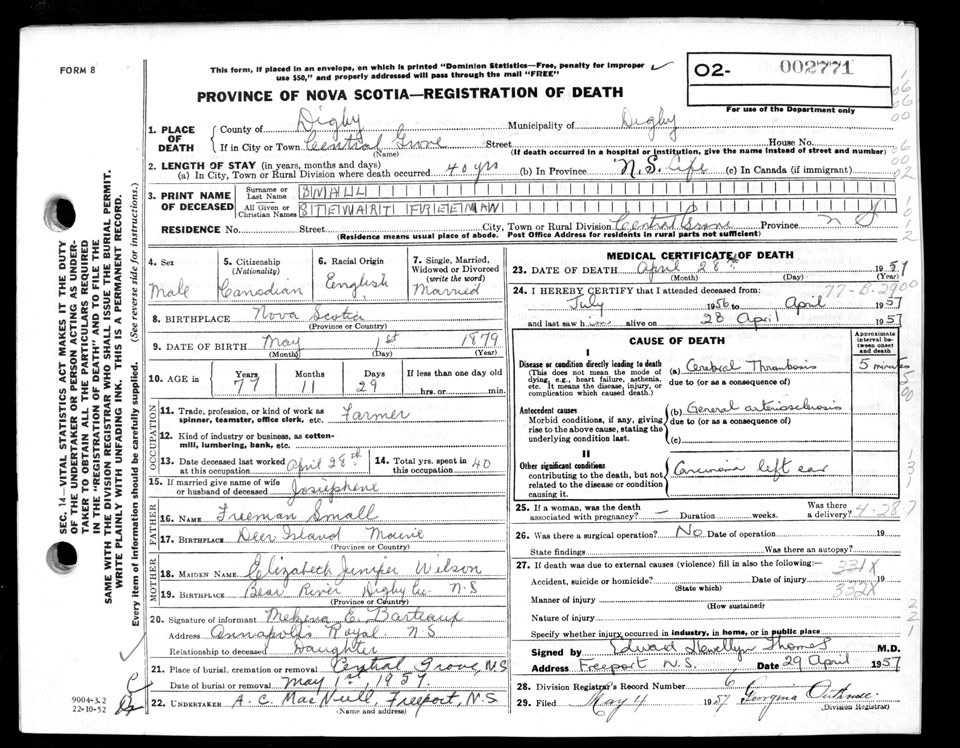 FORM 8
This form, if placed in an envelope, on which is printed "Dominion Statistics—Free, penalty for improper
use $50," and properly addressed will pass through the mail "FREE"
O2- 002771
For use of the Department only
PROVINCE OF NOVA SCOTIA—REGISTRATION OF DEATH
1. PLACE OF DEATH
County of Digby Municipality of Digby
If in City or Town Central Grove Street House No.
(Name) (If death occurred in a hospital or institution, give the name instead of street and number)
2. LENGTH OF STAY (in years, months and days)
(a) In City, Town or Rural Division where death occurred 40 yrs (b) In Province N.S. Life (c) In Canada (if immigrant)
3. PRINT NAME OF DECEASED
Surname or Last Name SMALL
All Given or Christian Names STEWART FREEMAN
RESIDENCE No. Street City, Town or Rural Division Central Grove Province N S
(Residence means usual place of abode. Post Office Address for residents in rural parts not sufficient)
4. Sex Male
5. Citizenship (Nationality) Canadian
6. Racial Origin English
7. Single, Married, Widowed or Divorced (write the word) Married
8. BIRTHPLACE Nova Scotia
(Province or Country)
9. DATE OF BIRTH May 1st 1879
(Month) (Day) (Year)
10. AGE in Years 77 Months 11 Days 29 If less than one day old
hrs. or min.
OCCUPATION
11. Trade, profession, or kind of work as spinner, teamster, office clerk, etc. Farmer
12. Kind of industry or business, as cotton-mill, lumbering, bank, etc.
13. Date deceased last worked at this occupation April 28th
14. Total yrs. spent in this occupation 40
15. If married give name of wife or husband of deceased Josephene
FATHER
16. NAME Freeman Small
17. BIRTHPLACE Deer Island Maine
(Province or Country)
MOTHER
18. MAIDEN NAME Elizabeth Juniper Wilson
19. BIRTHPLACE Bear River Digby Co. N.S
(Province or Country)
20. Signature of informant E. Barteaux
Address Annapolis Royal. N.S
Relationship to deceased Daughter
21. Place of burial, cremation or removal Central Grove, N.S
Date of burial or removal May 1st, 1957
22. UNDERTAKER A. C. MacNeill, Freeport, N.S
(Name and address)
MEDICAL CERTIFICATE OF DEATH
23. DATE OF DEATH April 28th 1957
(Month) (Day) (Year)
77-B-2900
24. I HEREBY CERTIFY that I attended deceased from:
July 1956 to April 1957
and last saw him alive on 28 April 1957
CAUSE OF DEATH
Approximate interval between onset and death
I
Disease or condition directly leading to death (a) Cerebral Thrombosis 5 minutes
(This does not mean the mode of dying, e.g., heart failure, asthenia, etc. It means the disease, injury, or complication which caused death.)
due to (or as a consequence of)
Antecedent causes (b) General arteriosclerosis
Morbid conditions, if any, giving rise to the above cause, stating the underlying condition last.
due to (or as a consequence of)
(c)
II
Other significant conditions Carcinoma left ear
contributing to the death, but not related to the disease or condition causing it.
25. If a woman, was the death associated with pregnancy? — Duration weeks. Was there a delivery?
4-28-7
26. Was there a surgical operation? No Date of operation 19
State findings Was there an autopsy?
27. If death was due to external causes (violence) fill in also the following:— 331X
Accident, suicide or homicide? Date of injury 19
(State which) 332X
Manner of injury
(How sustained)
Nature of injury
Specify whether injury occurred in industry, in home, or in public place
Signed by Edward Llewellyn Thomas M.D.
Address Freeport N.S. Date 29 April 1957
28. Division Registrar's Record Number 6
29. Filed May 4 1957 Georgina Outhouse
(Division Registrar)
SEC. 14—VITAL STATISTICS ACT MAKES IT THE DUTY
OF THE UNDERTAKER OR PERSON ACTING AS UNDER-
TAKER TO OBTAIN ALL THE PARTICULARS REQUIRED
IN THE "REGISTRATION OF DEATH" AND TO FILE THE
SAME WITH THE DIVISION REGISTRAR WHO SHALL ISSUE THE BURIAL PERMIT.
WRITE PLAINLY WITH UNFADING INK. THIS IS A PERMANENT RECORD.
Every item of information should be carefully supplied. (See reverse side for instructions.)
9004-3.2
22-10-52